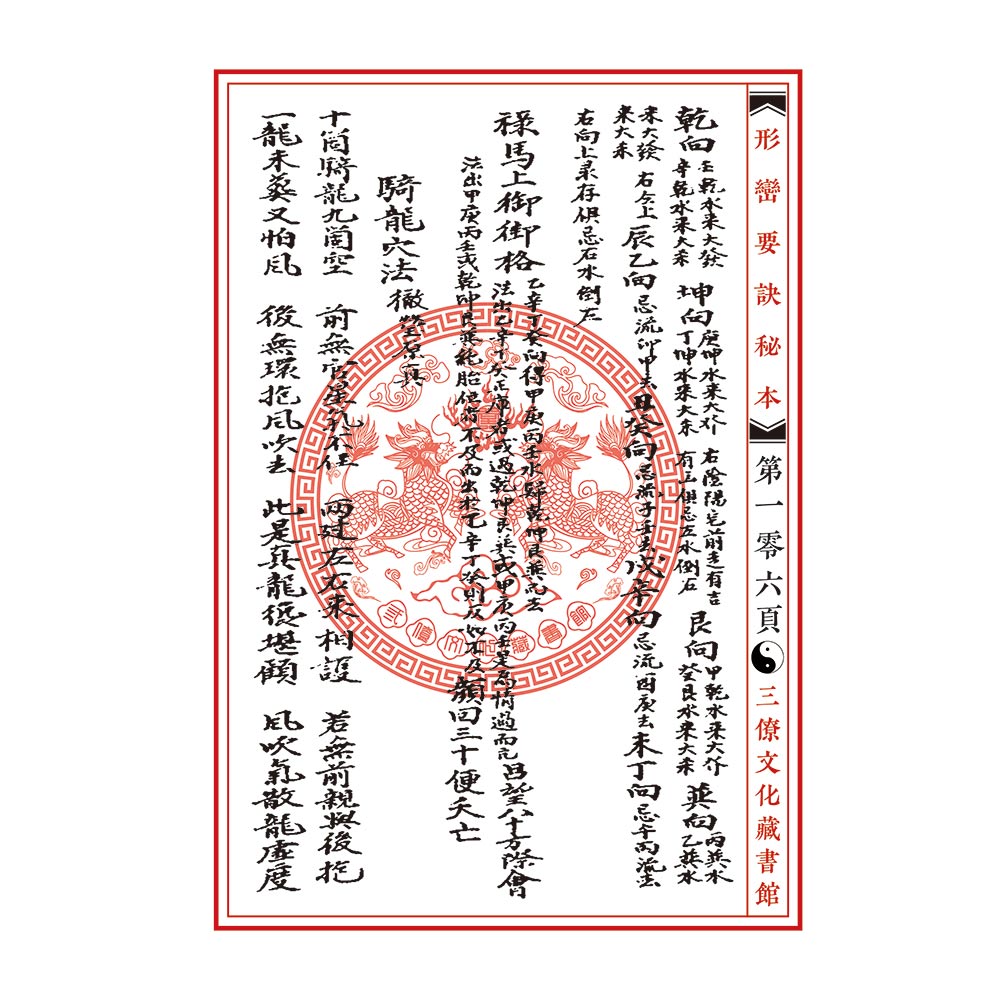 形巒要訣秘本
第一零六頁
三僚文化藏書館
乾向 壬乾水來大發 辛乾水來大杀 坤向 庚坤水來大介 丁坤水來大杀 右陰陽 前 有吉 有 俱忌左水倒右 艮向 甲乾水來大介 癸艮水來大杀 巽向 丙巽水 乙巽水
來大發 來大杀 右 上 辰乙向 忌流卯甲去 丑癸向 忌流子壬去 戌辛向 忌流酉庚去 未丁向 忌午丙流去
右向上录存俱忌右水倒左
祿馬上御街格 乙辛丁癸向得甲庚丙壬水歸乾坤艮巽而去
法出乙辛丁癸 庫者或過乾坤艮巽或甲庚丙壬是為情過而亢 呂望八十方際會
法出甲庚丙壬或乾坤艮巽絶胎位 不及而出於乙辛丁癸則反 不及 顏回三十便夭亡
騎龍穴法 徹瑩原真
十個騎龍九個空 前無官星 不住 兩边左右來相護 若無前親與後抱
一龍未葬又怕風 後無環抱風吹去 此是真龍 堪顧 風吹氣散龍虛度
藏書館